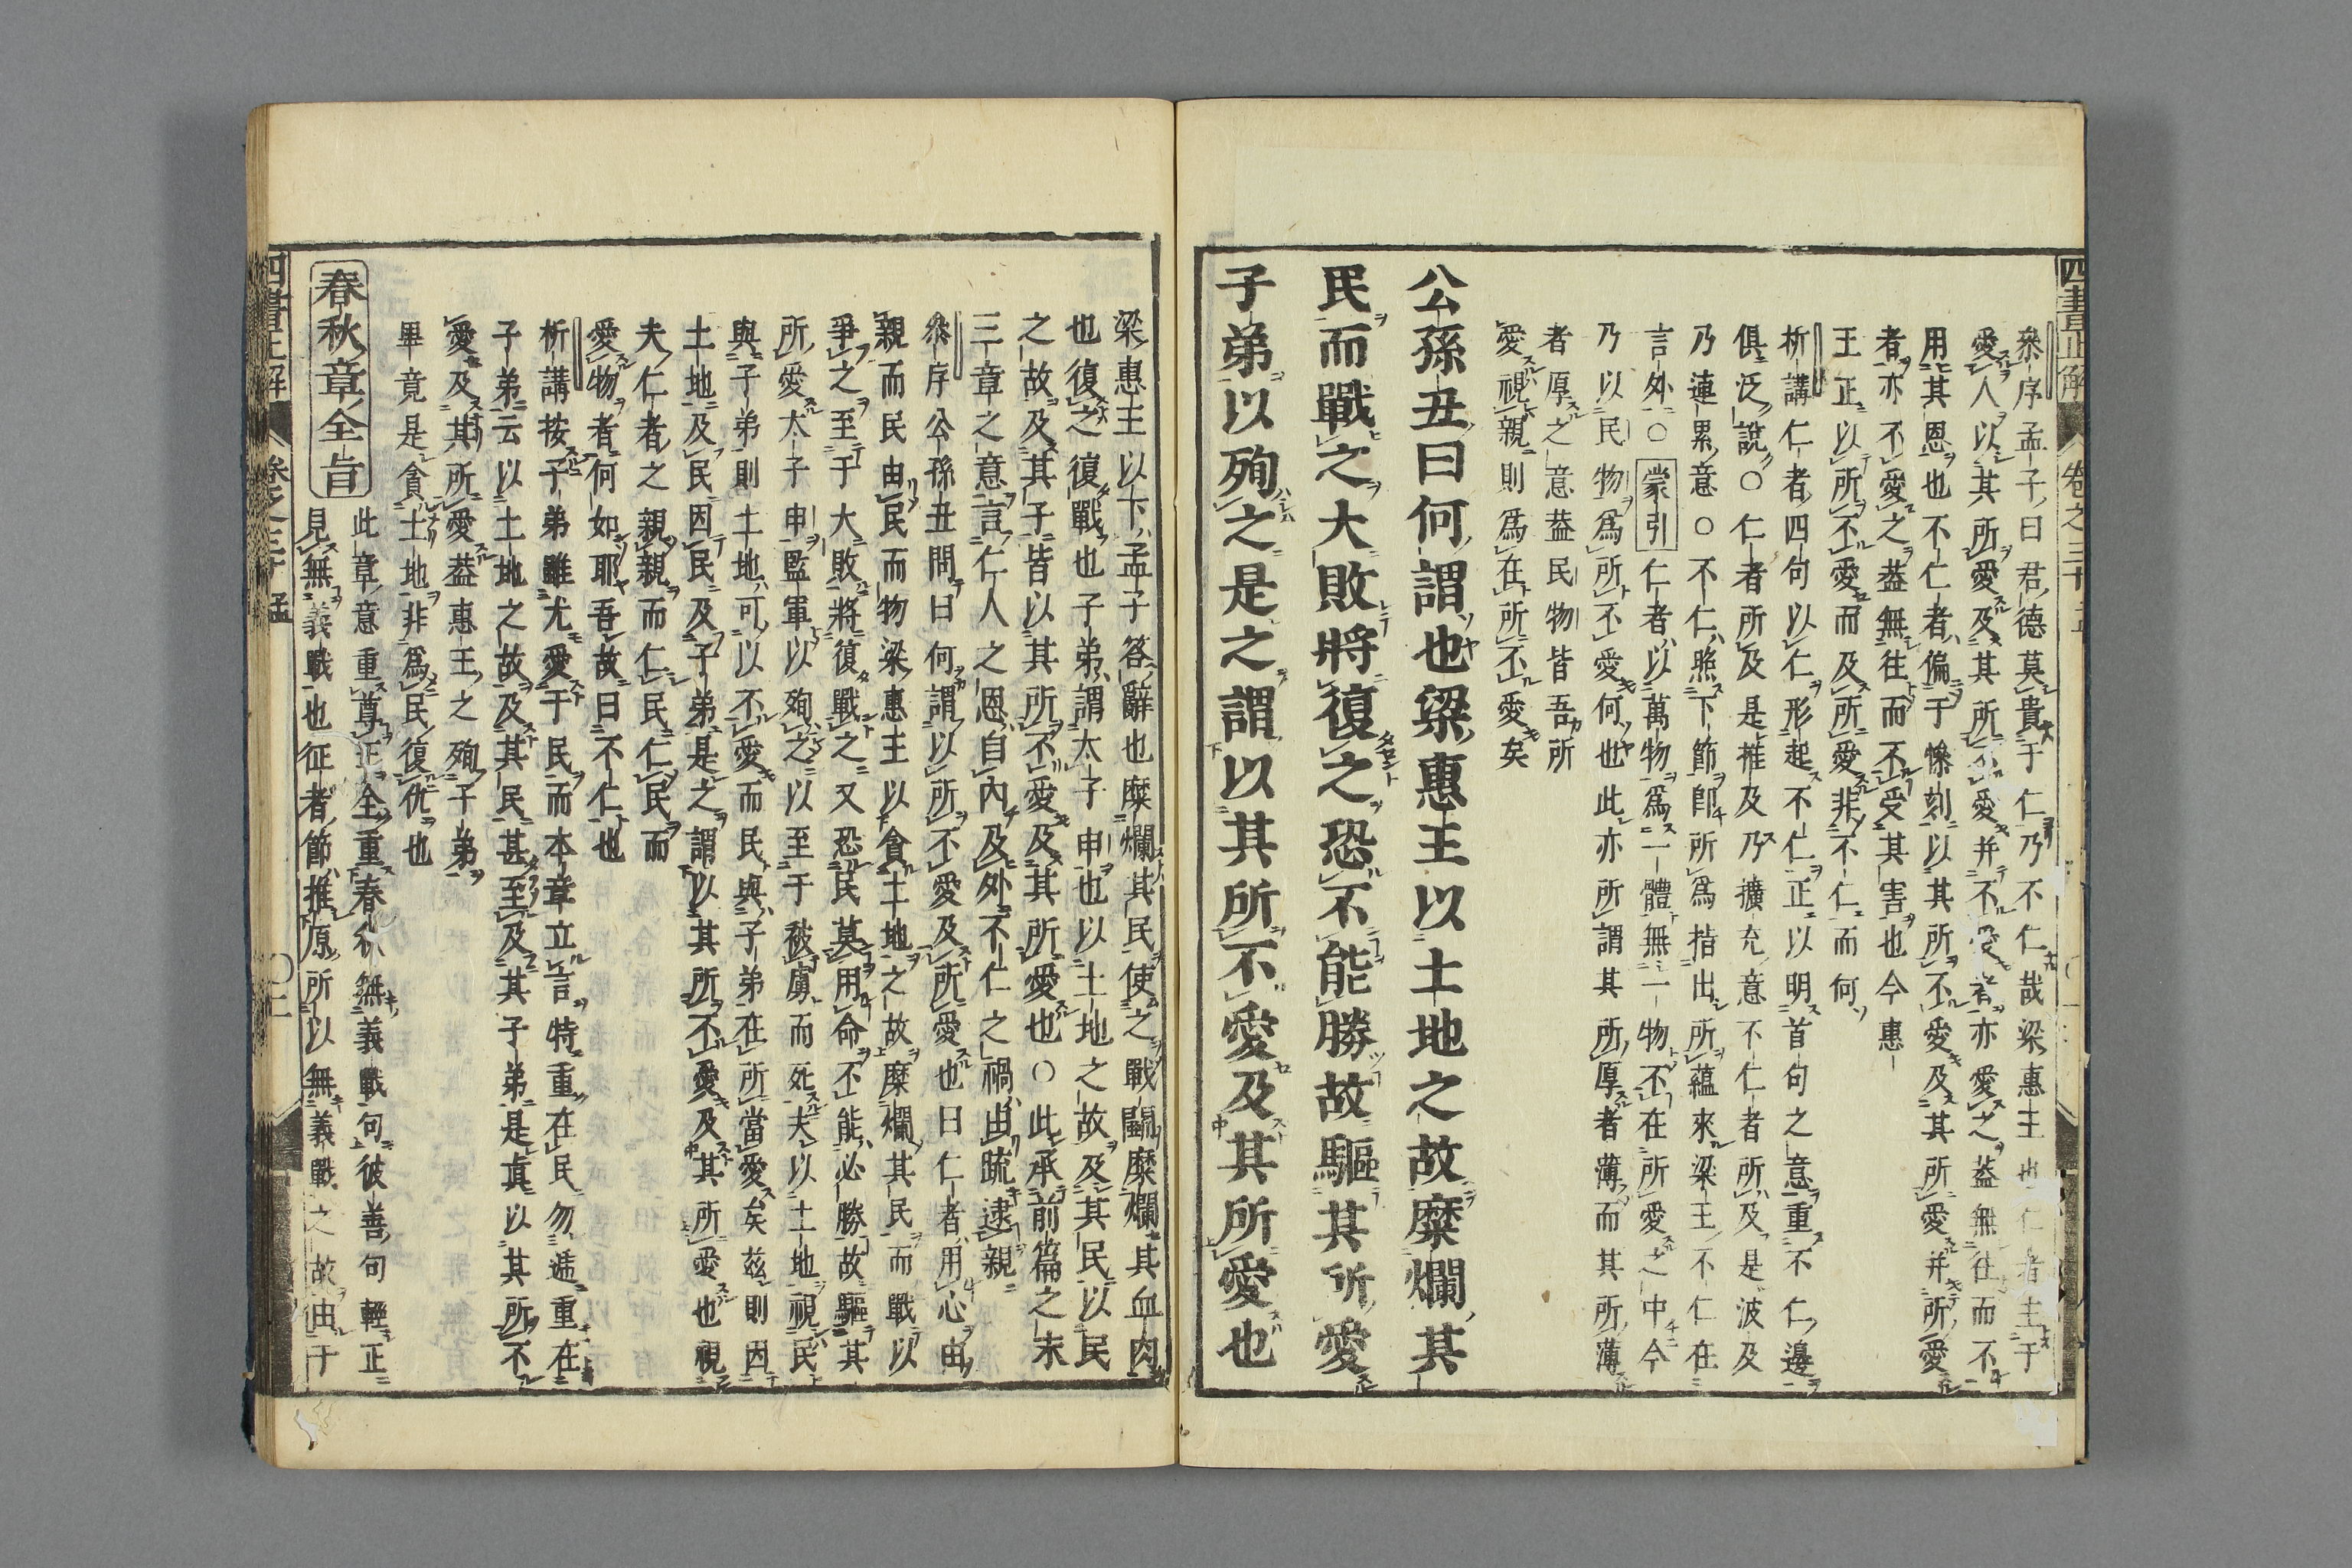 四書正解 卷之三十
叅序孟子曰君德莫貴于仁乃不仁哉梁惠王也仁者主于
愛人以其所愛及其所不愛并不愛者亦愛之葢無徃而不
用其恩也不仁者偏于慘刻以其所不愛及其所愛并所愛
者亦不愛之葢無徃而不受其害也今惠
王正以所不愛而及所愛非不仁而何
析講仁者四句以仁形起不仁正以明首句之意重不仁邊
俱泛說○仁者所及是推及乃擴充意不仁者所及是波及
乃連累意○不仁照下節卽所爲措出所蘊來梁王不仁在
言外○蒙引仁者以萬物爲一體無一物不在所愛之中今
乃以民物爲所不愛何也此亦所謂其所厚者薄而其所薄
者厚之意葢民物皆吾所
愛視親則爲在所不愛矣
公孫丑曰何謂也梁惠王以土地之故糜爛其
民而戰之大敗將復之恐不能勝故驅其所愛
子弟以殉之是之謂以其所不愛及其所愛也
梁惠王以下孟子答辭也糜爛其民使之戰鬬糜爛其血肉
也復之復戰也子弟謂太子申也以土地之故及其民以民
之故及其子皆以其所不愛及其所愛也○此承前篇之末
三章之意言仁人之恩自內及外不仁之禍由疏逮親
叅序公孫丑問曰何謂以所不愛及所愛也曰仁者用心由
親而民由民而物梁惠主以貪土地之故糜爛其民而戰以
爭之至于大敗將復戰之又恐民莫用命不能必勝故驅其
所愛太子申監軍以殉之以至于被虜而死夫以土地視民
與子弟則土地可以不愛而民與子弟在所當愛矣茲則因
土地及民因民及子弟是之謂以其所不愛及其所愛也視
夫仁者之親親而仁民仁民而
愛物者何如耶吾故曰不仁也
析講按子弟雖尤愛于民而本章立言特重在民勿遞重在
子弟云以土地之故及其民甚至及其子弟是眞以其所不
愛及其所愛葢惠王之殉子弟
畢竟是貪土地非爲民復仇也
春秋章全旨
此章意重尊王全重春秋無義戰句彼善句輕正
見無義戰也征者節推原所以無義戰之故由于
四書正解 卷之三十 孟